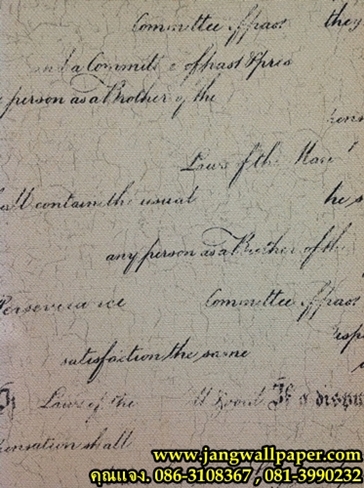 Committee of past they
and a Committee of past
person as a Brother of the
Laws of the
shall contain the usual he s
any person as a Brother of the
Perseverance Committee of past
satisfaction the same
Laws of the If a dispu
pensation shall
www.jangwallpaper.com
คุณแจง. 086-3108367 , 081-3990232